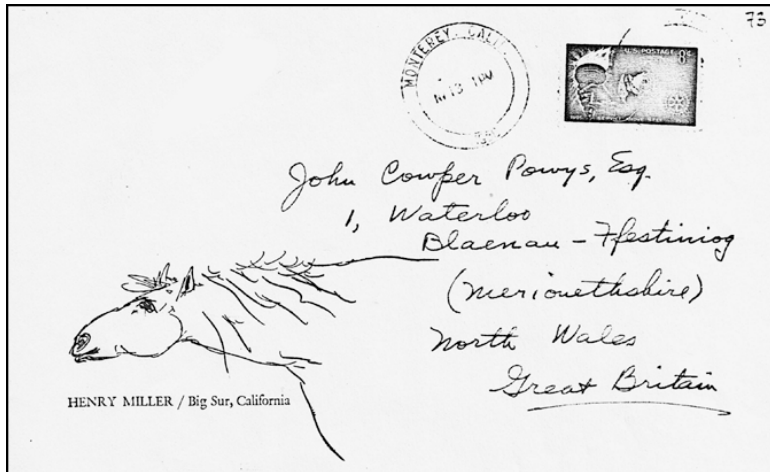 73
MONTEREY, CALIF.
1 PM
U.S. POSTAGE 8¢
John Cowper Powys, Esq.
1, Waterloo
Blaenau - Ffestiniog
(Merionethshire)
North Wales
Great Britain
HENRY MILLER / Big Sur, California